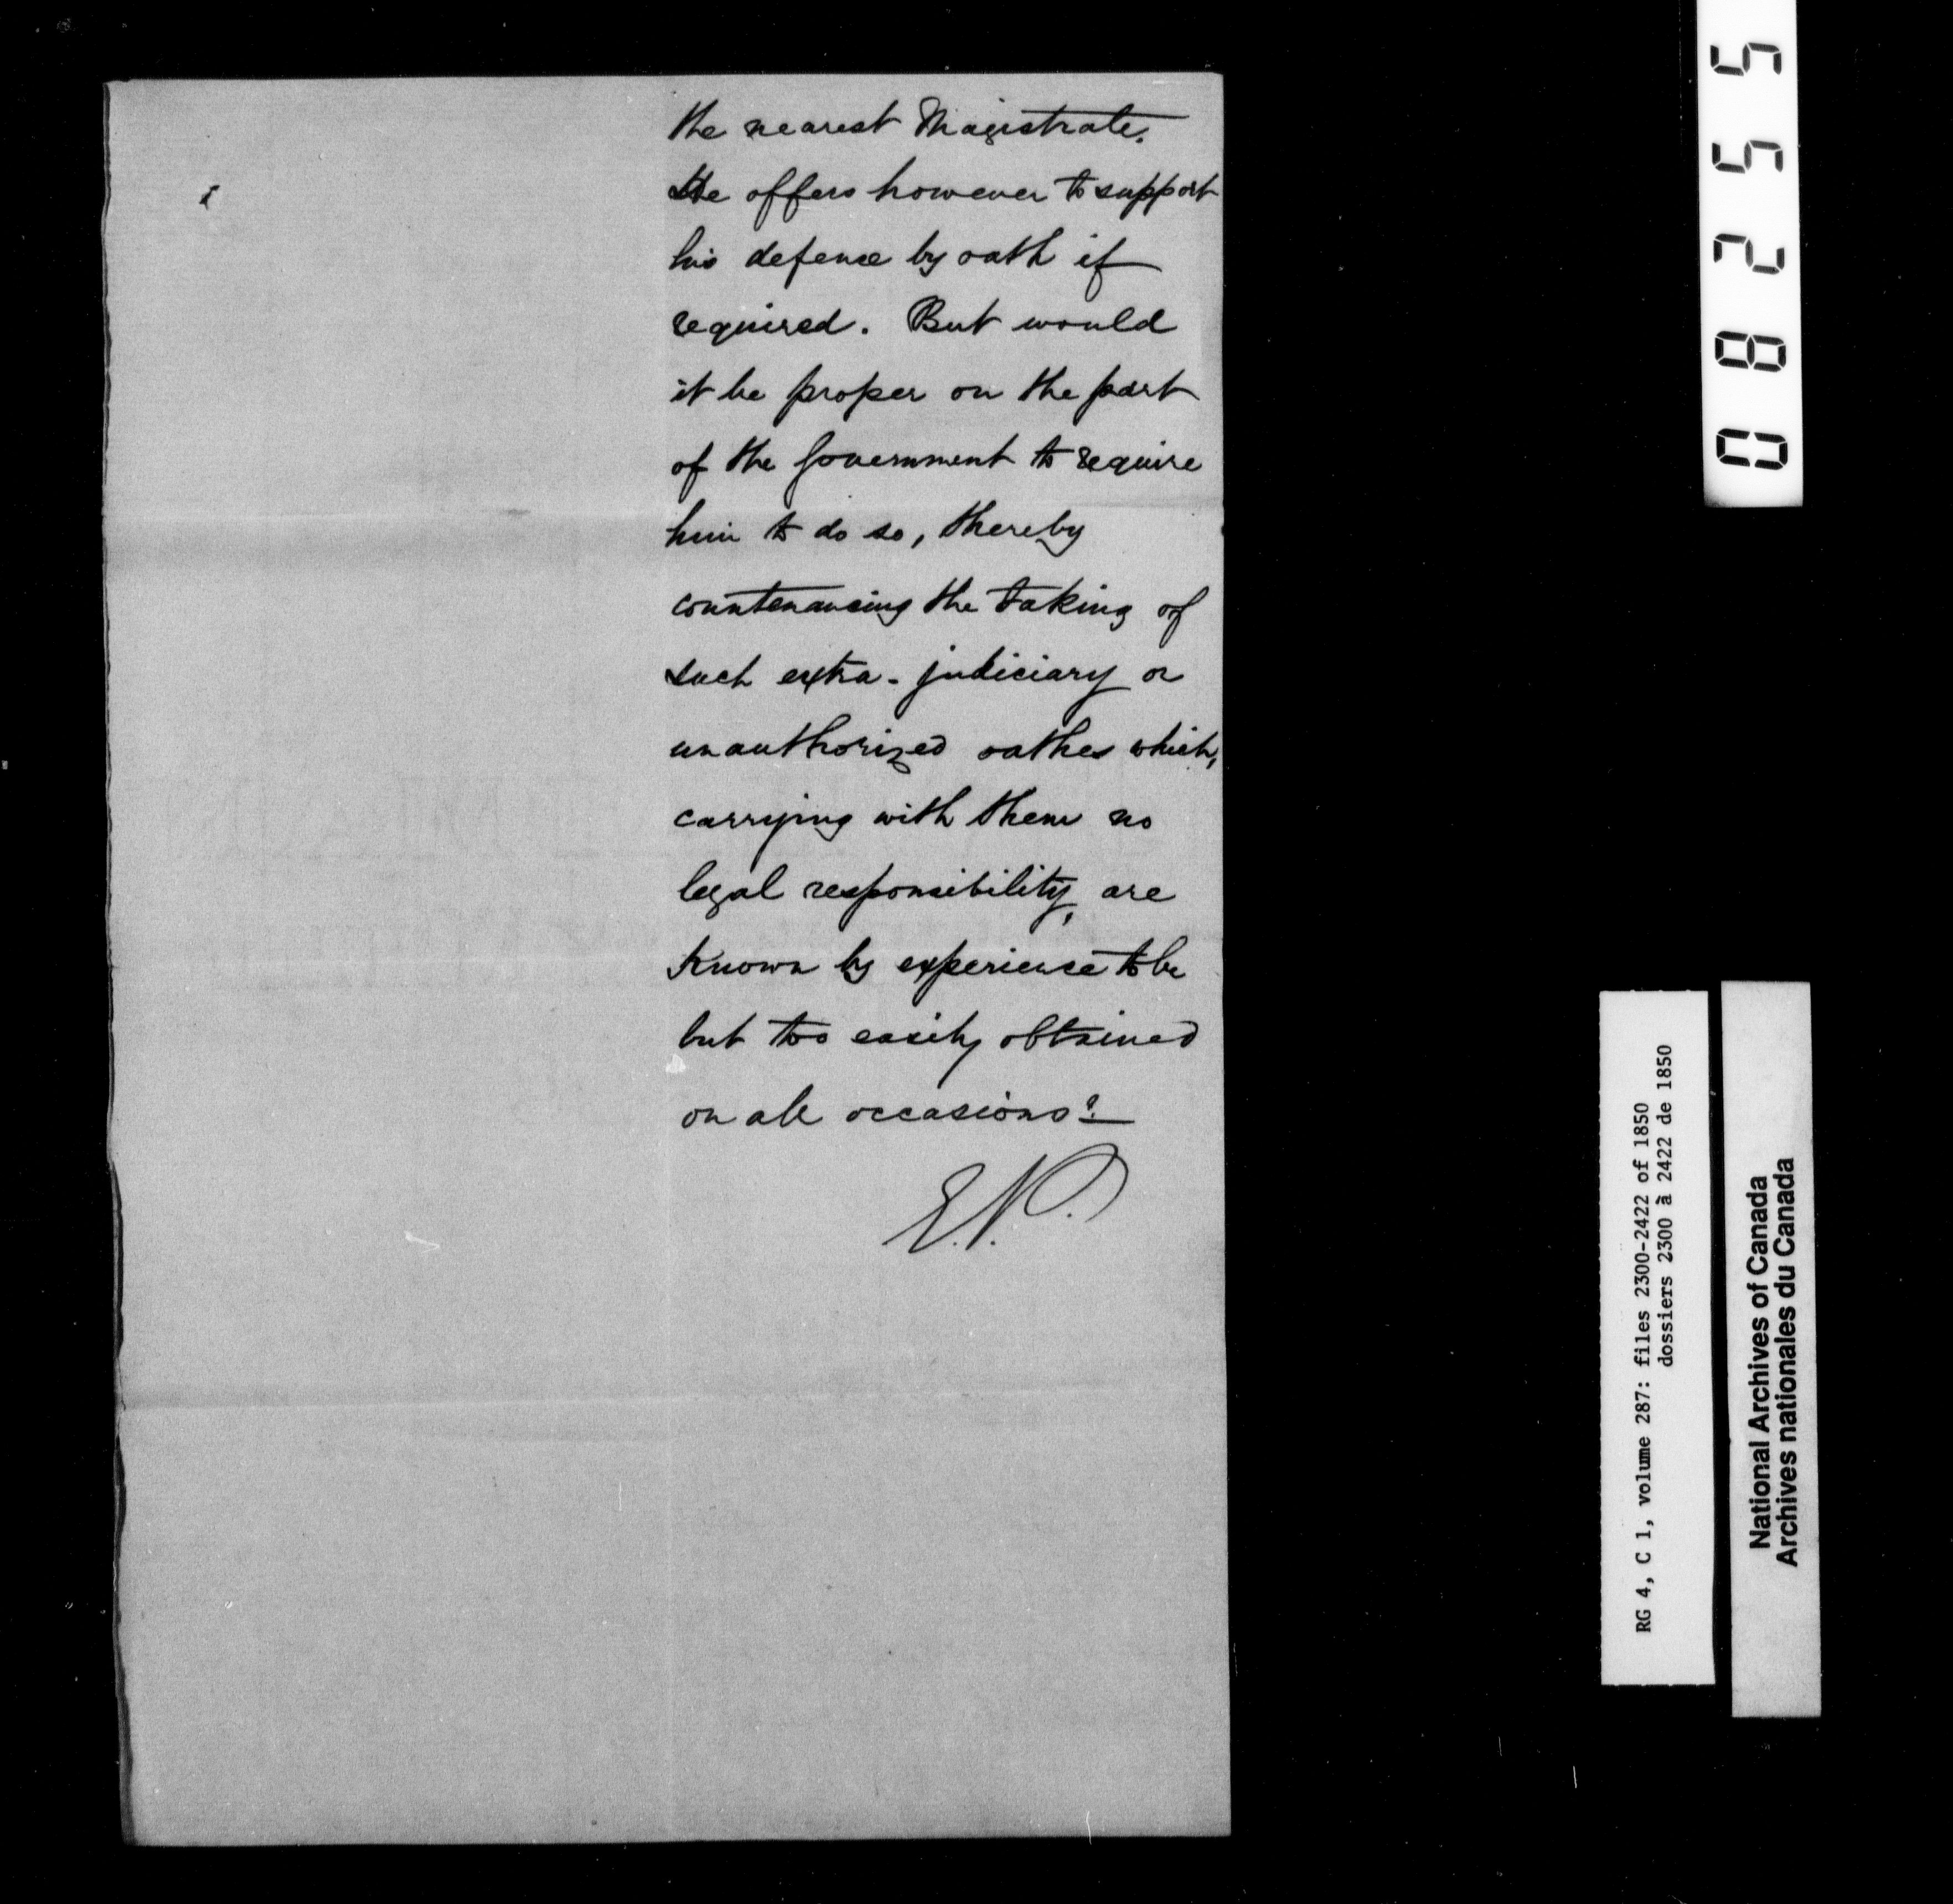 the nearest Magistrate.
He offers however to support
his defence by oath if
required. But would
it be proper on the part
of the Government to require
him to do so, thereby
countenancing the taking of
such extra-judiciary or
unauthorized oathes which,
carrying with them no
legal responsibility, are
known by experience to be
but too easily obtained
on all occasions?
E.P.
08255
RG 4, C 1, volume 287: files 2300-2422 of 1850
dossiers 2300 à 2422 de 1850
National Archives of Canada
Archives nationales du Canada